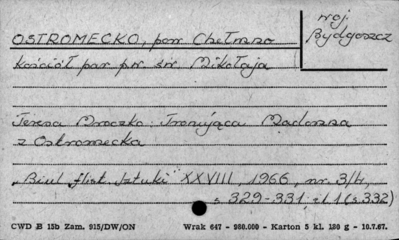 woj.
Bydgoszcz
OSTROMECKO, pow Chełmno
Kościół par pw. św. Mikołaja
Teresa Mroczko: Tronująca Madonna
z Ostromecka
„Biul. Hist. Sztuki" XXVIII, 1966, nr. 3/4,
s 329-331 il 1 (s 332)
CWD B 15b Zam. 915/DW/ON Wrak 647 - 980.000 - Karton 5 kl. 180 g - 10.7.67.